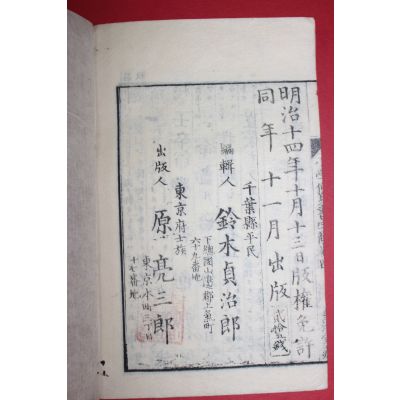 明治十四年十月十三日版權免許
同年十一月出版
千葉縣平民
編輯人 鈴木貞治郎
六十九番地
東京府士族
出版人 原亮三郎
十七番地